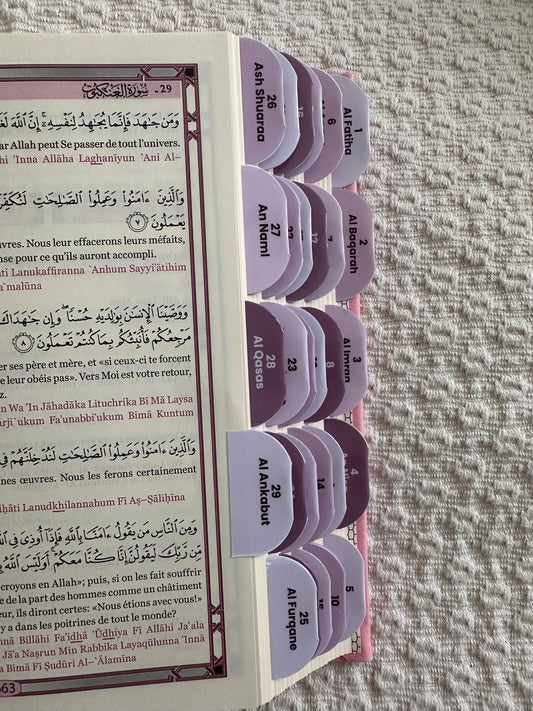 29 - سُورَةُ العَنكَبُوت
وَمَن جَٰهَدَ فَإِنَّمَا يُجَٰهِدُ لِنَفْسِهِۦٓ ۚ إِنَّ ٱللَّهَ
ar Allah peut Se passer de tout l'univers.
hi 'Inna Allāha Laghanīyun `Ani Al–
وَٱلَّذِينَ ءَامَنُوا۟ وَعَمِلُوا۟ ٱلصَّٰلِحَٰتِ
يَعْمَلُونَ ٧
uvres. Nous leur effacerons leurs méfaits,
nse pour ce qu'ils auront accompli.
āti Lanukaffiranna `Anhum Sayyi'ātihim
a`malūna
وَوَصَّيْنَا ٱلْإِنسَٰنَ بِوَٰلِدَيْهِ حُسْنًا ۖ وَإِن جَٰهَدَاكَ
مَرْجِعُكُمْ فَأُنَبِّئُكُم بِمَا كُنتُمْ تَعْمَلُونَ ٨
er ses père et mère, et «si ceux-ci te forcent
e leur obéis pas». Vers Moi est votre retour,
z.
n Wa 'In Jāhadāka Lituchrika Bī Mā Laysa
arji`ukum Fa'unabbi'ukum Bimā Kuntum
وَٱلَّذِينَ ءَامَنُوا۟ وَعَمِلُوا۟ ٱلصَّٰلِحَٰتِ لَنُدْخِلَنَّهُمْ فِى
nes œuvres. Nous les ferons certainement
iĥāti Lanudkhilannahum Fī Aş–Şāliĥīna
وَمِنَ ٱلنَّاسِ مَن يَقُولُ ءَامَنَّا بِٱللَّهِ فَإِذَآ أُوذِىَ فِى
مِّن رَّبِّكَ لَيَقُولُنَّ إِنَّا كُنَّا مَعَكُمْ ۚ أَوَلَيْسَ ٱللَّهُ
croyons en Allah»; puis, si on les fait souffrir
e de la part des hommes comme un châtiment
eur, ils diront certes: «Nous étions avec vous!»
y a dans les poitrines de tout le monde?
nnā Billāhi Fa'idhā 'Ūdhiya Fī Allāhi Ja`ala
Jā'a Naşrun Min Rabbika Layaqūlunna 'Innā
a Bimā Fī Şudūri Al–`Ālamīna
63
26
Ash Shuaraa
6
1
Al Fatiha
27
An Naml
2
Al Baqarah
28
Al Qasas
23
8
3
Al Imran
29
Al Ankabut
14
4
25
Al Furqane
10
5